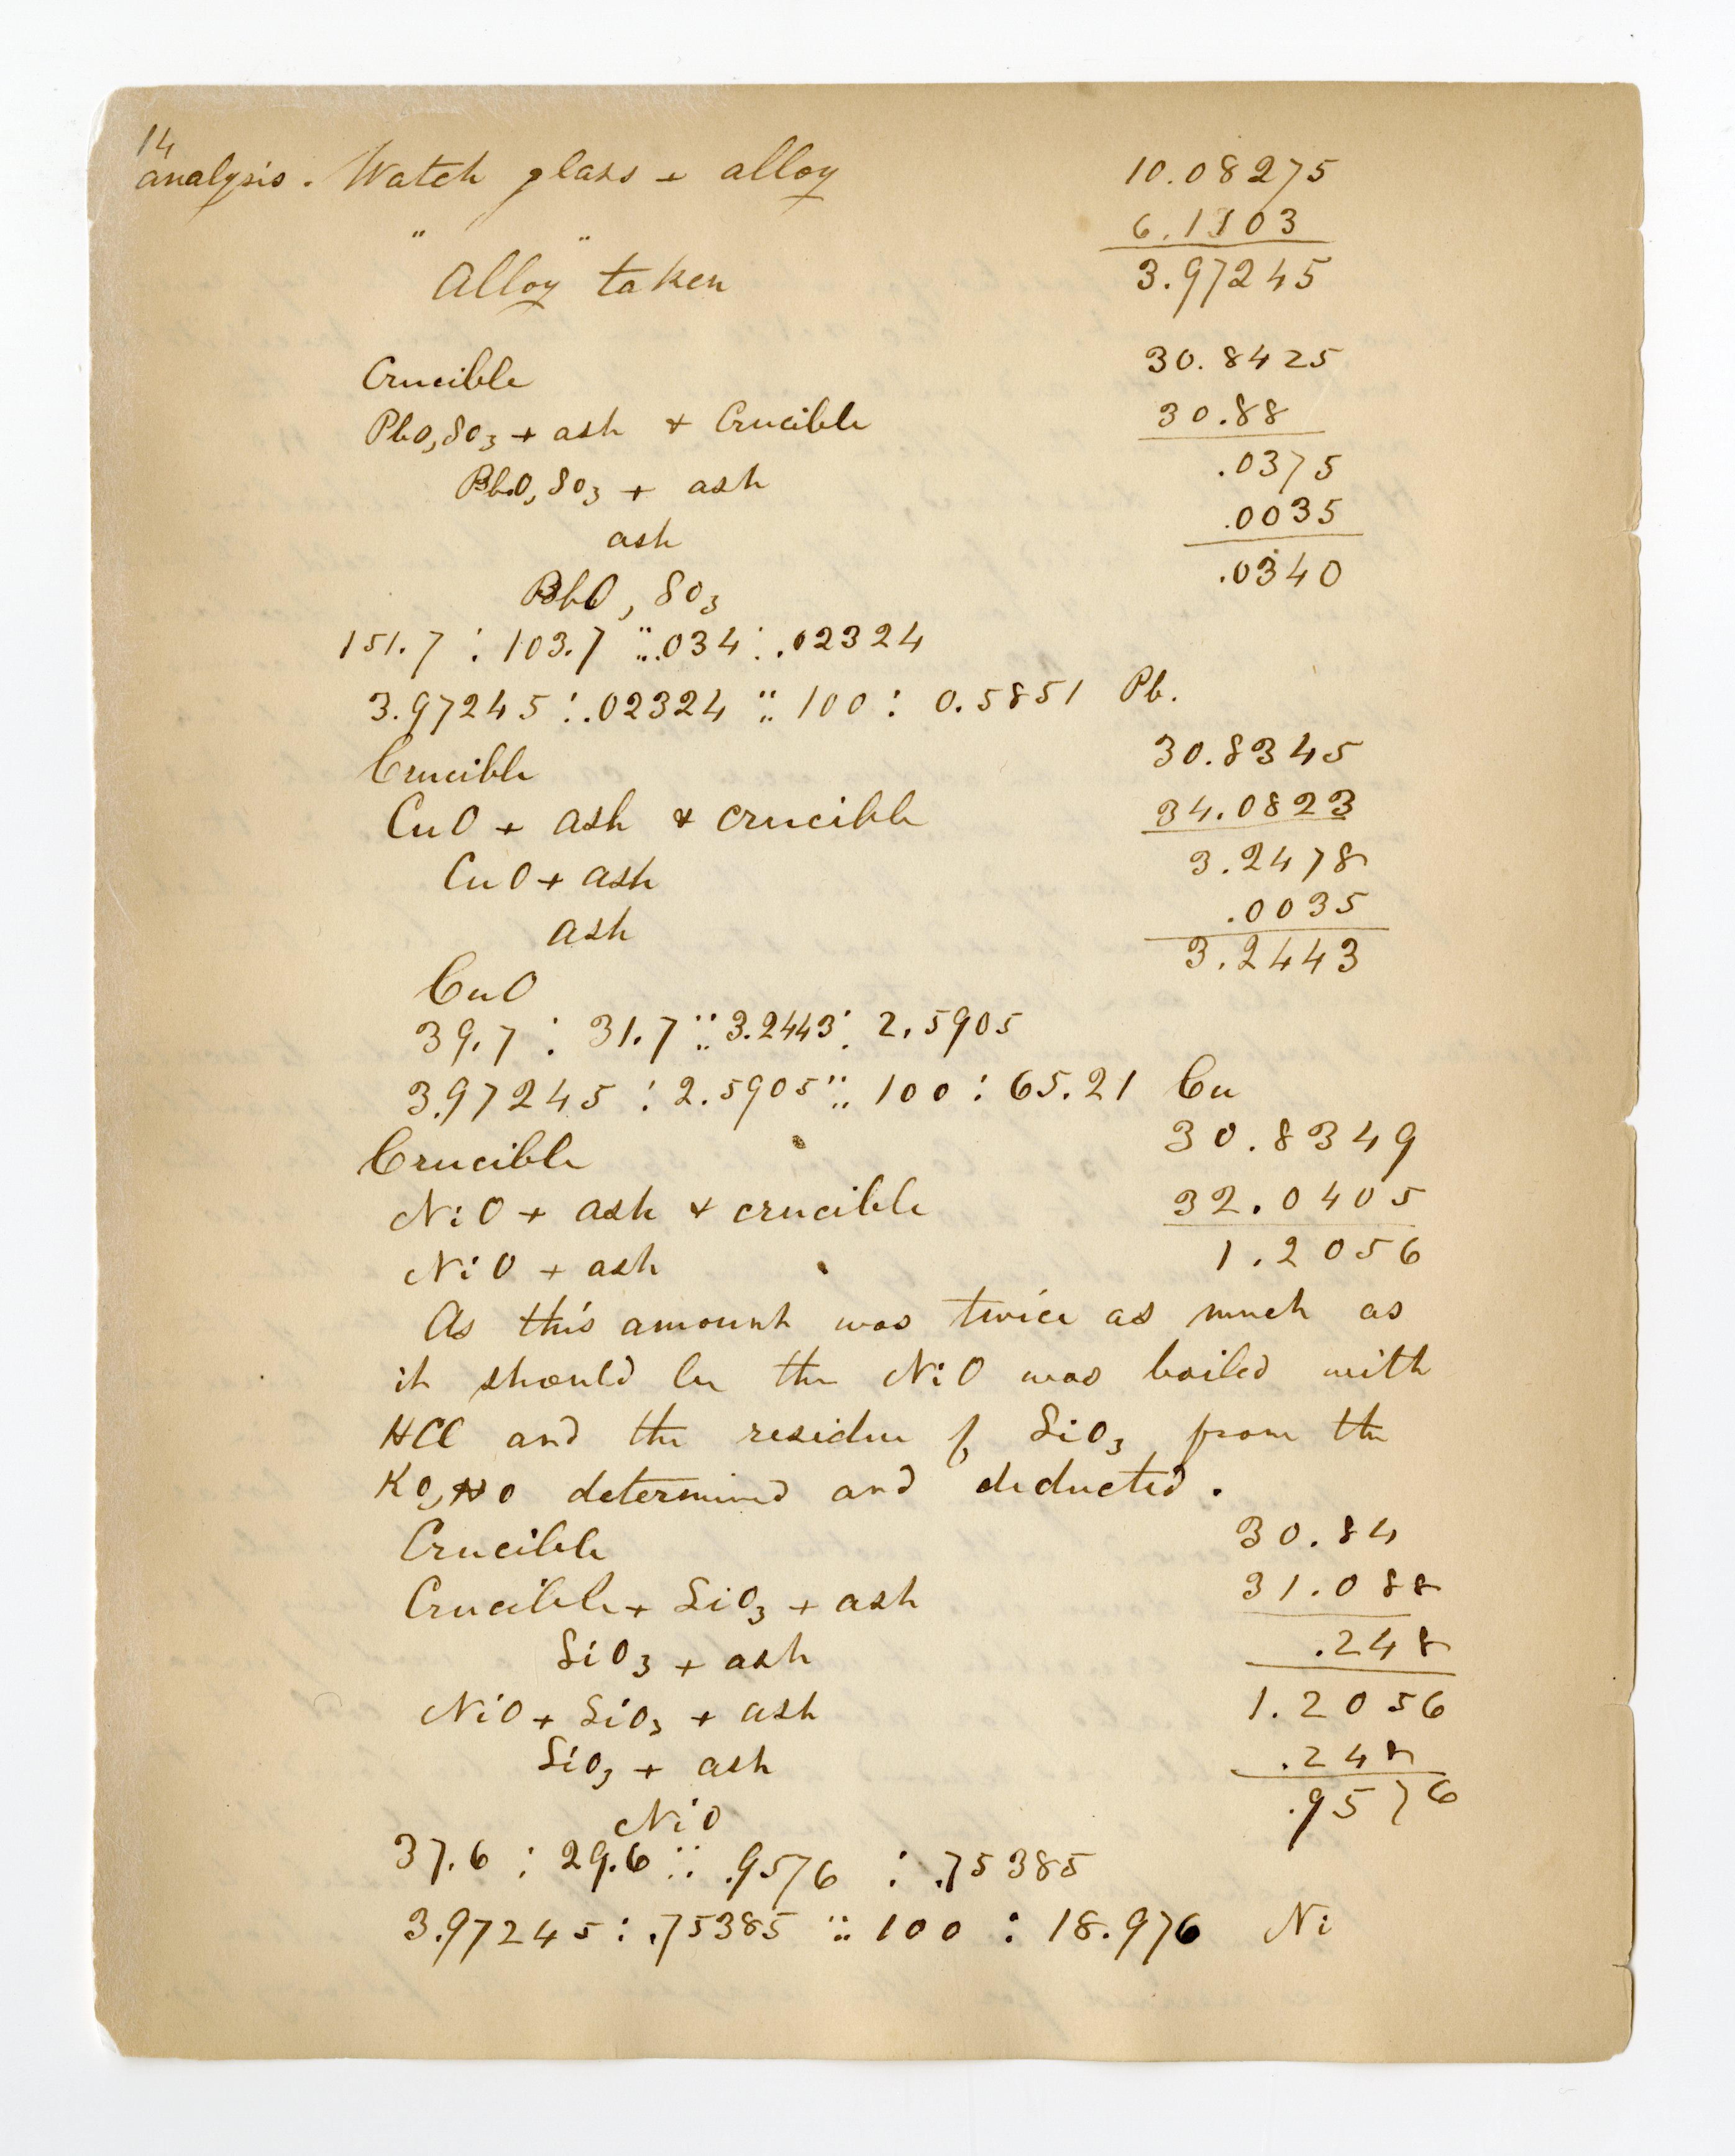 14
analysis. Watch glass + alloy 10.08275
" " 6.1103
Alloy taken 3.97245
Crucible 30.8425
PbO,SO3 + ash & Crucible 30.88
PbO,SO3 + ash .0375
ash .0035
PbO, SO3 .0340
151.7 : 103.7 :: .034 : .02324
3.97245 : .02324 :: 100 : 0.5851 Pb.
Crucible 30.8345
CuO + ash & crucible 34.0823
CuO + ash 3.2478
ash .0035
CuO 3.2443
39.7 : 31.7 :: 3.2443 : 2.5905
3.97245 : 2.5905 :: 100 : 65.21 Cu
Crucible 30.8349
NiO + ash & crucible 32.0405
NiO + ash 1.2056
As this amount was twice as much as
it should be the NiO was boiled with
HCl and the residue of SiO3 from the
KO,HO determined and deducted.
Crucible 30.84
Crucible + SiO3 + ash 31.088
SiO3 + ash .248
NiO + SiO3 + ash 1.2056
SiO3 + ash .248
NiO .9576
37.6 : 29.6 :: .9576 : .75385
3.97245 : .75385 :: 100 : 18.976 Ni